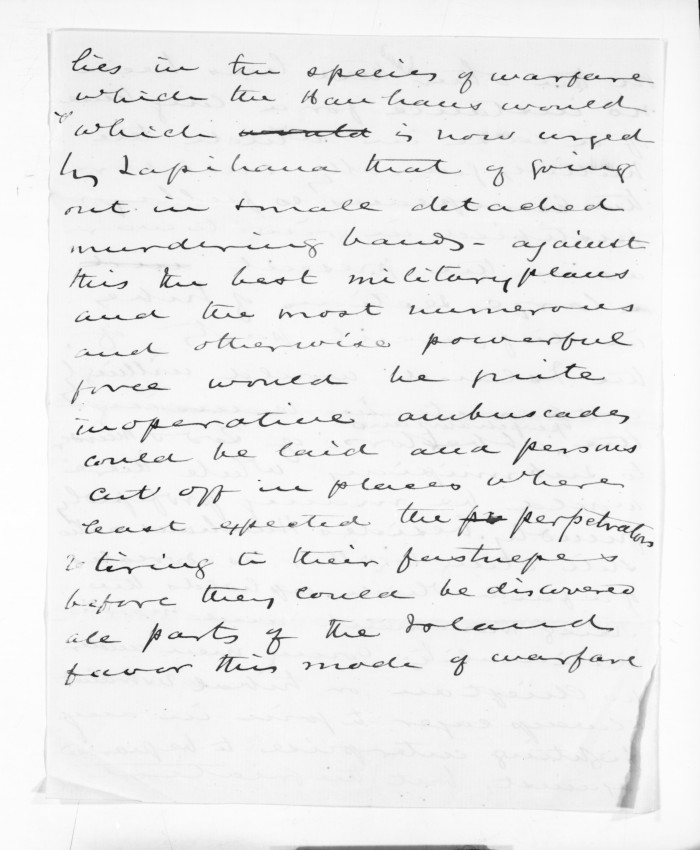 lies in the species of warfare
which the Hauhaus would
& which would is now urged
by Tapihana that of going
out in small detached
murdering bands - against
this the best military plans
and the most numerous
and otherwise powerful
force would be quite
inoperative ambuscades
could be laid and persons
cut off in places where
least expected the pr perpetrators
retiring to their fastnesses
before they could be discovered
all parts of the Island
favor this mode of warfare